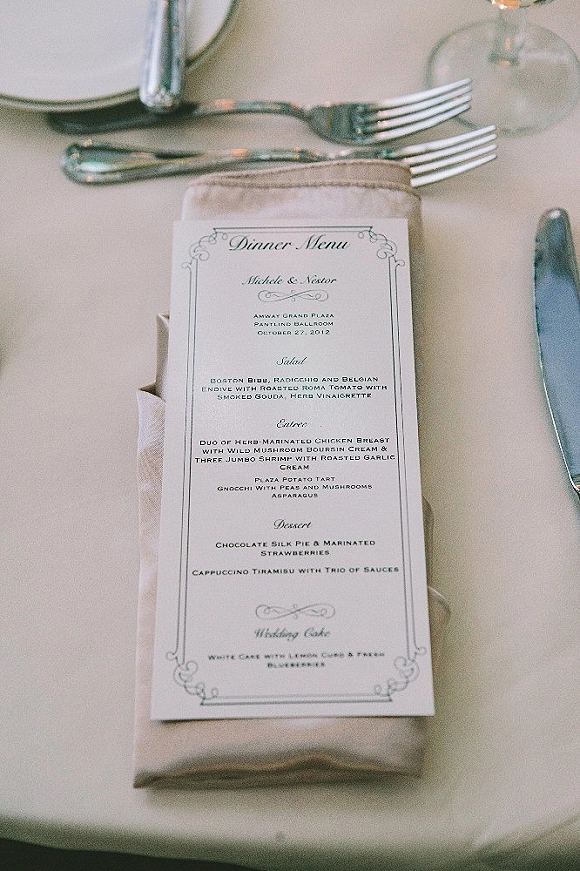 Dinner Menu
Michele & Nestor
Amway Grand Plaza
Pantlind Ballroom
October 27, 2012
Salad
Boston Bibb, Radicchio and Belgian
Endive with Roasted Roma Tomato with
Smoked Gouda, Herb Vinaigrette
Entree
Duo of Herb-Marinated Chicken Breast
with Wild Mushroom Boursin Cream &
Three Jumbo Shrimp with Roasted Garlic
Cream
Plaza Potato Tart
Gnocchi With Peas and Mushrooms
Asparagus
Dessert
Chocolate Silk Pie & Marinated
Strawberries
Cappuccino Tiramisu with Trio of Sauces
Wedding Cake
White Cake with Lemon Curd & Fresh
Blueberries